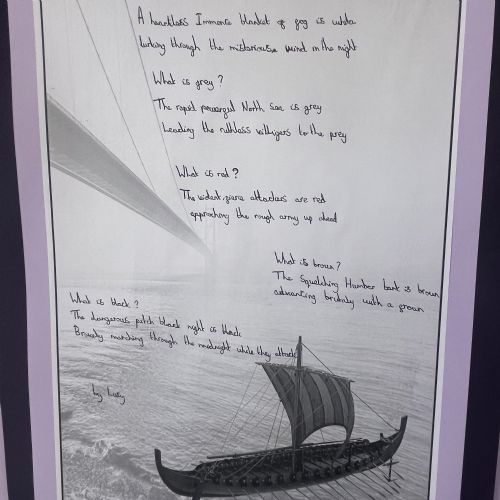 A heartless Immense blanket of fog is white
lurking through the misterieuse wind in the night
What is grey?
The rapid powergul North Sea is grey
Leading the ruthless villigers to the prey
What is red?
The violent, fierce attackers are red
approaching the rough army up ahead
What is brown?
The Squelching Humber bank is brown
advancing brutaly with a grown
What is black?
The dangerous pitch black night is black
Bravely marching through the midnight while they attack
by Lucy